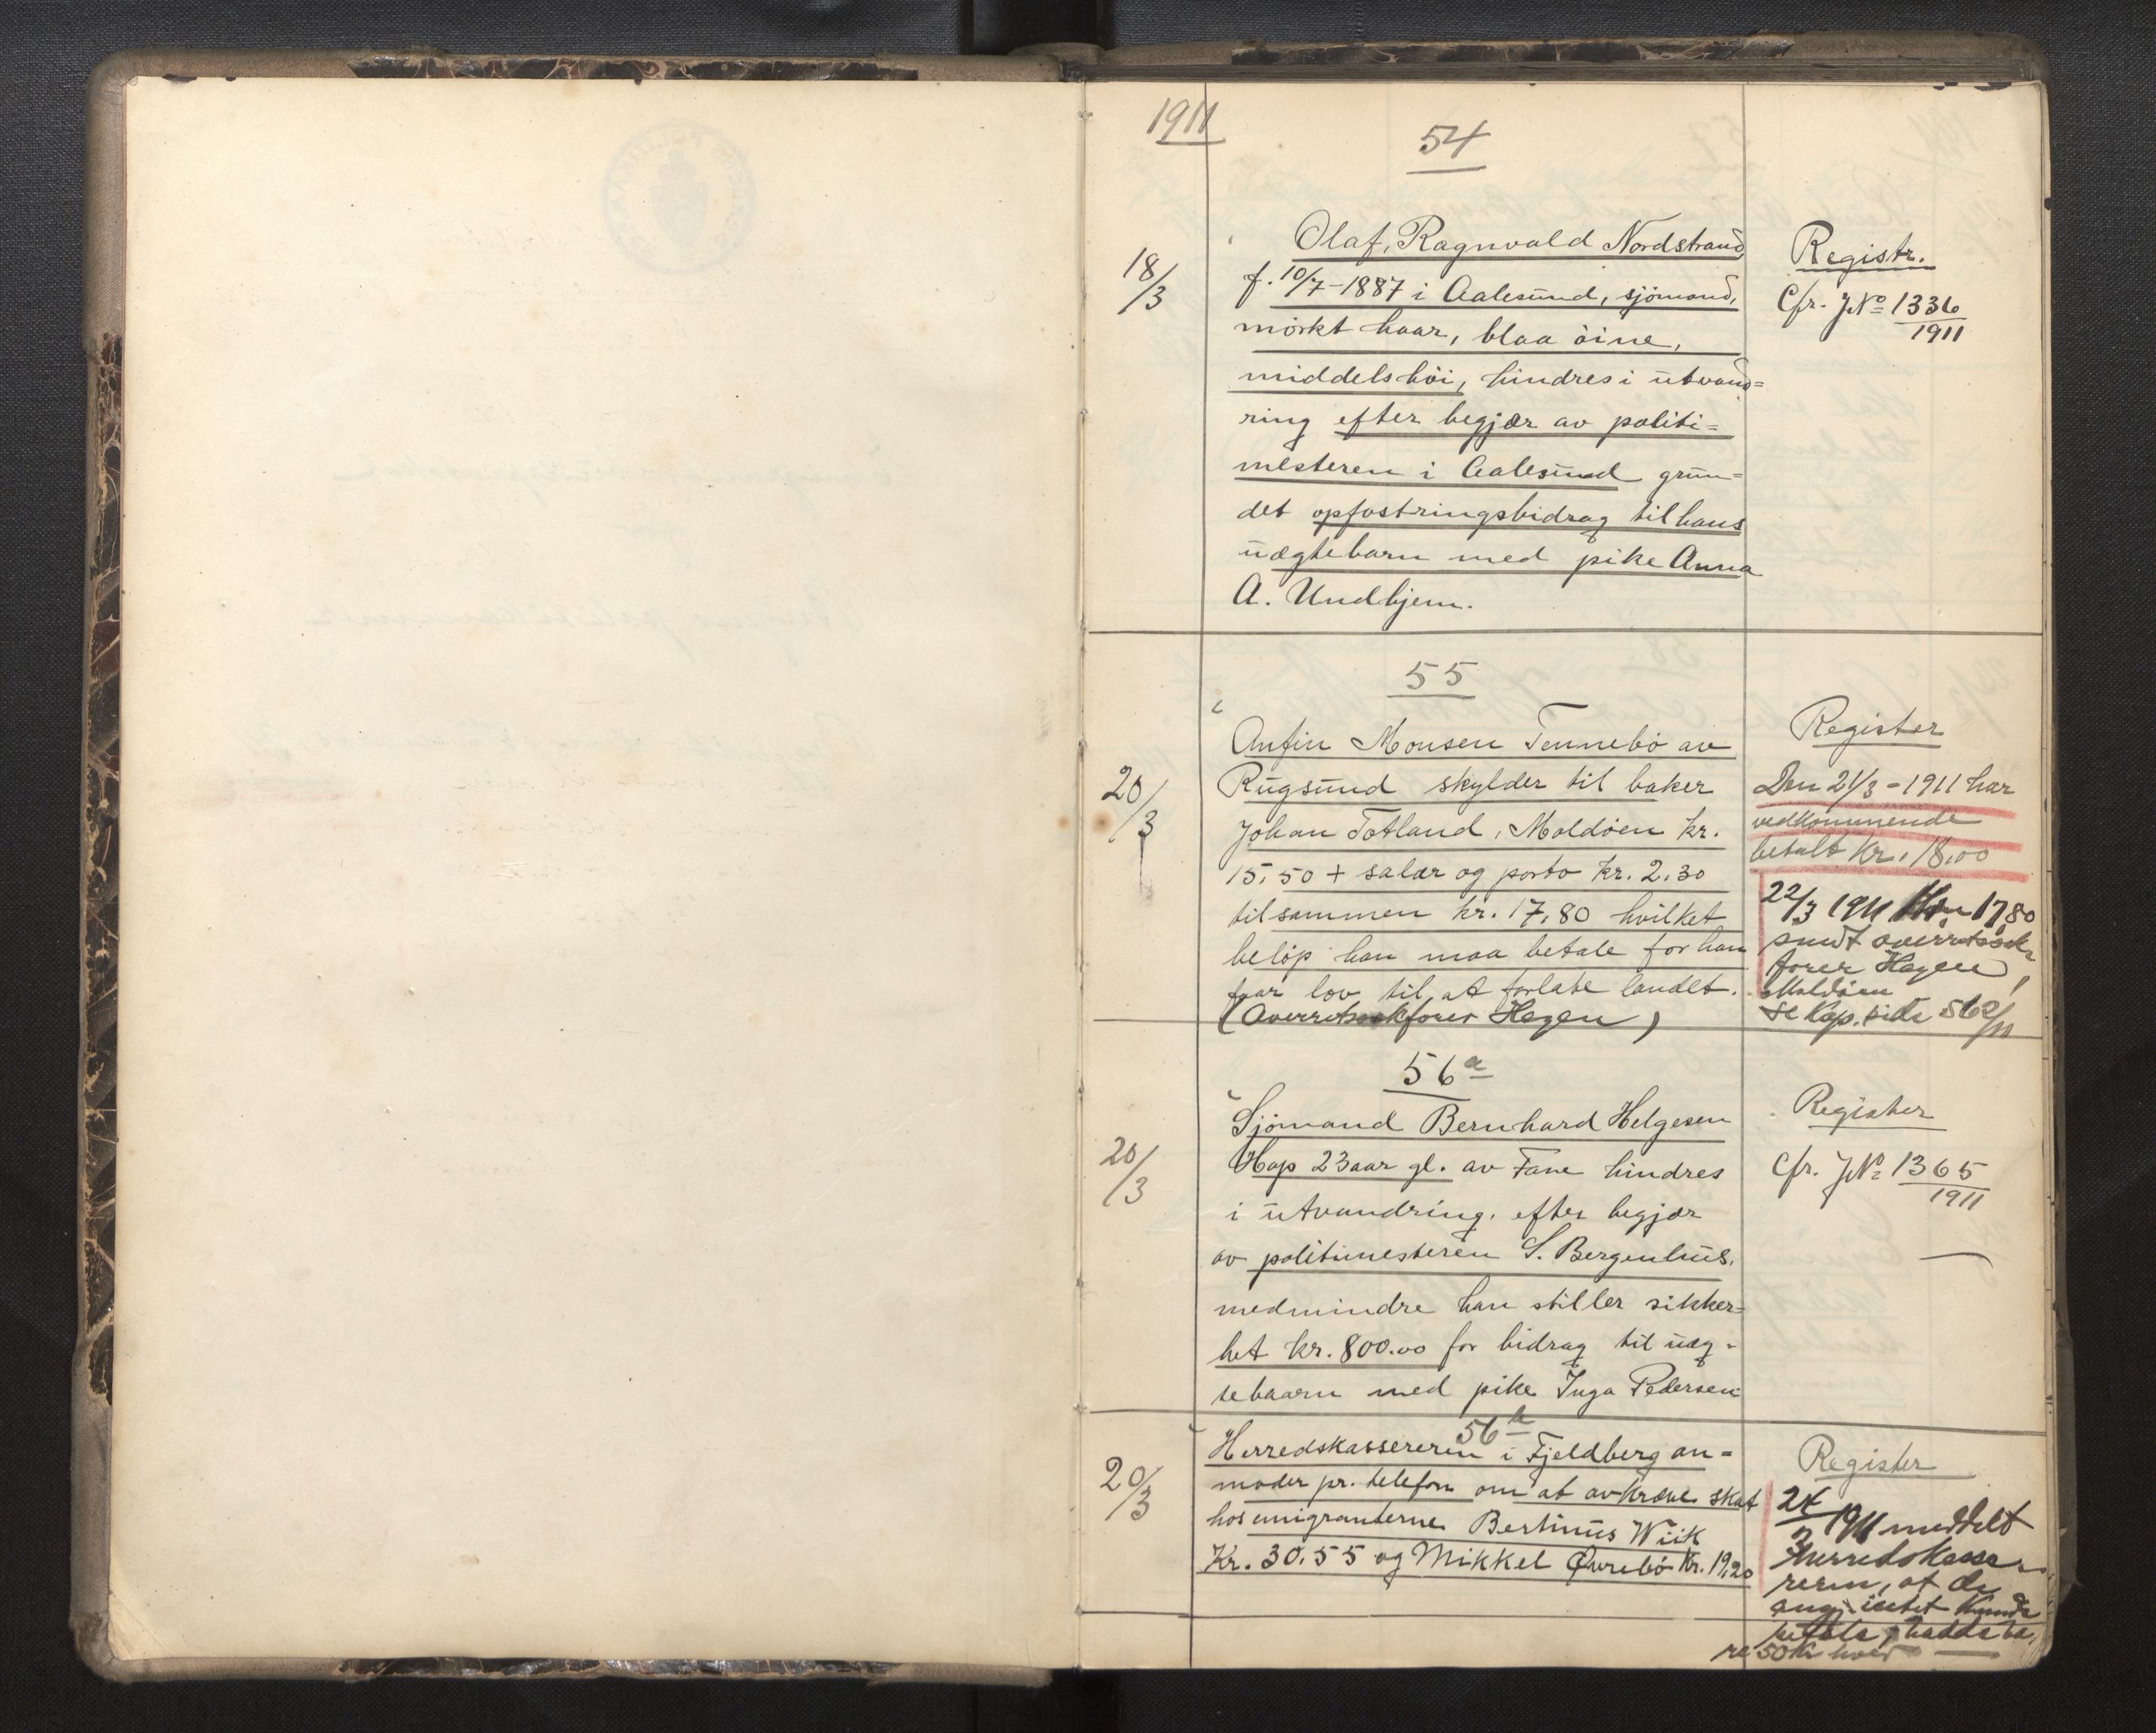 1911
54
18/3
Olaf Ragnvald Nordstrand,
f. 10/7-1887 i Aalesund, sjömand,
mörkt haar, blaa öine,
middelshöi, hindres i utvand=
ring efter begjær av politi=
mesteren i Aalesund grun=
det opfostringsbidrag til hans
uægtebarn med pike Anna
A. Undhjem.
Registr.
Cfr. J.No 1336
1911
55
20/3
Anfin Monsen Tennebö av
Rugsund skylder til baker
Johan Totland, Moldöen kr.
15,50 + salær og porto kr. 2,30
tilsammen kr. 17,80 hvilket
belöp han maa betale för han
faar lov til at forlate landet.
(Overretssakförer Hagen)
Register
Den 21/3-1911 har
vedkommende
betalt kr. 18,00
22/3 1911 17,80
sendt overretssak
förer Hagen,
Moldöen
se Kop. side 562/11
56a
20/3
Sjömand Bernhard Helgesen
Hop 23 aar gl. av Fane hindres
i utvandring, efter begjær
av politimesteren S. Bergenhus,
medmindre han stiller sikker=
het kr. 800.00 for bidrag til uæg-
tebaarn med pike Inga Pedersen
Register
Cfr. J.No 1365
1911
56b
20/3
Herredskassereren i Fjeldberg an=
moder pr. telefon om at avkræve skat
hos emigranterne Bertinus Wiik
Kr. 30,55 og Mikkel Øvrebö Kr. 19,20
Register
24/3 1911 meddelt
herredskasse
reren, at de
ang. intet kunde
betale, hadde ba
re 50 Kr hver